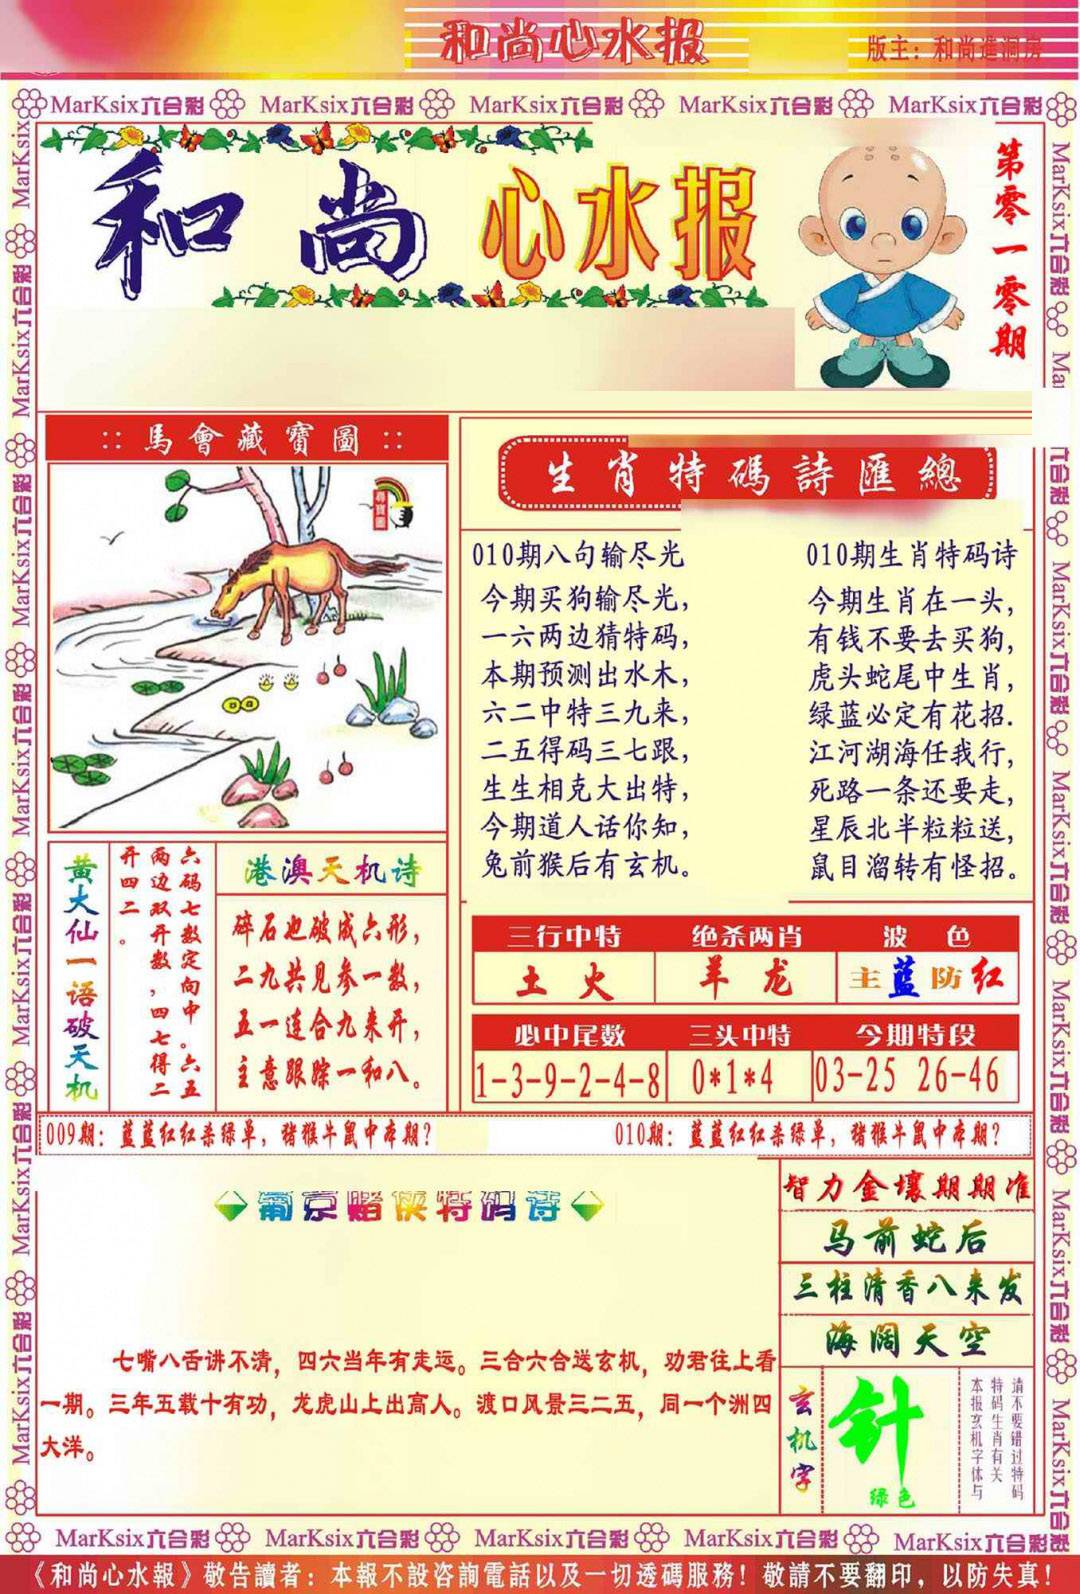 和尚心水报
版主：和尚進洞房
MarKsix六合彩 MarKsix六合彩 MarKsix六合彩 MarKsix六合彩 MarKsix六合彩
和尚心水报
第零一零期
::馬會藏寶圖::
尋寶圖
生肖特碼詩匯總
010期八句输尽光
今期买狗输尽光，
一六两边猜特码，
本期预测出水木，
六二中特三九来，
二五得码三七跟，
生生相克大出特，
今期道人话你知，
兔前猴后有玄机。
010期生肖特码诗
今期生肖在一头，
有钱不要去买狗，
虎头蛇尾中生肖，
绿蓝必定有花招.
江河湖海任我行，
死路一条还要走，
星辰北半粒粒送，
鼠目溜转有怪招。
黄大仙一语破天机
六码七数定向中。六五
两边双开数，四七得二
开四二。
港澳天机诗
碎石也破成六形，
二九共见参一数，
五一连合九来开，
主意跟踪一和八。
三行中特 绝杀两肖 波色
土火 羊龙 主蓝防红
必中尾数 三头中特 今期特段
1-3-9-2-4-8 0*1*4 03-25 26-46
009期：蓝蓝红红杀绿单，猪猴牛鼠中本期？
010期：蓝蓝红红杀绿单，猪猴牛鼠中本期？
葡京赌侠特码诗
七嘴八舌讲不清，四六当年有走运。三合六合送玄机，劝君往上看
一期。三年五载十有功，龙虎山上出高人。渡口风景三二五，同一个洲四
大洋。
智力金壤期期准
马前蛇后
三柱清香八来发
海阔天空
玄机字
针
绿色
请不要错过特码
特码生肖有关
本报玄机字体与
MarKsix六合彩 MarKsix六合彩 MarKsix六合彩 MarKsix六合彩 MarKsix六合彩
《和尚心水報》敬告讀者：本報不設咨詢電話以及一切透碼服務！敬請不要翻印，以防失真！